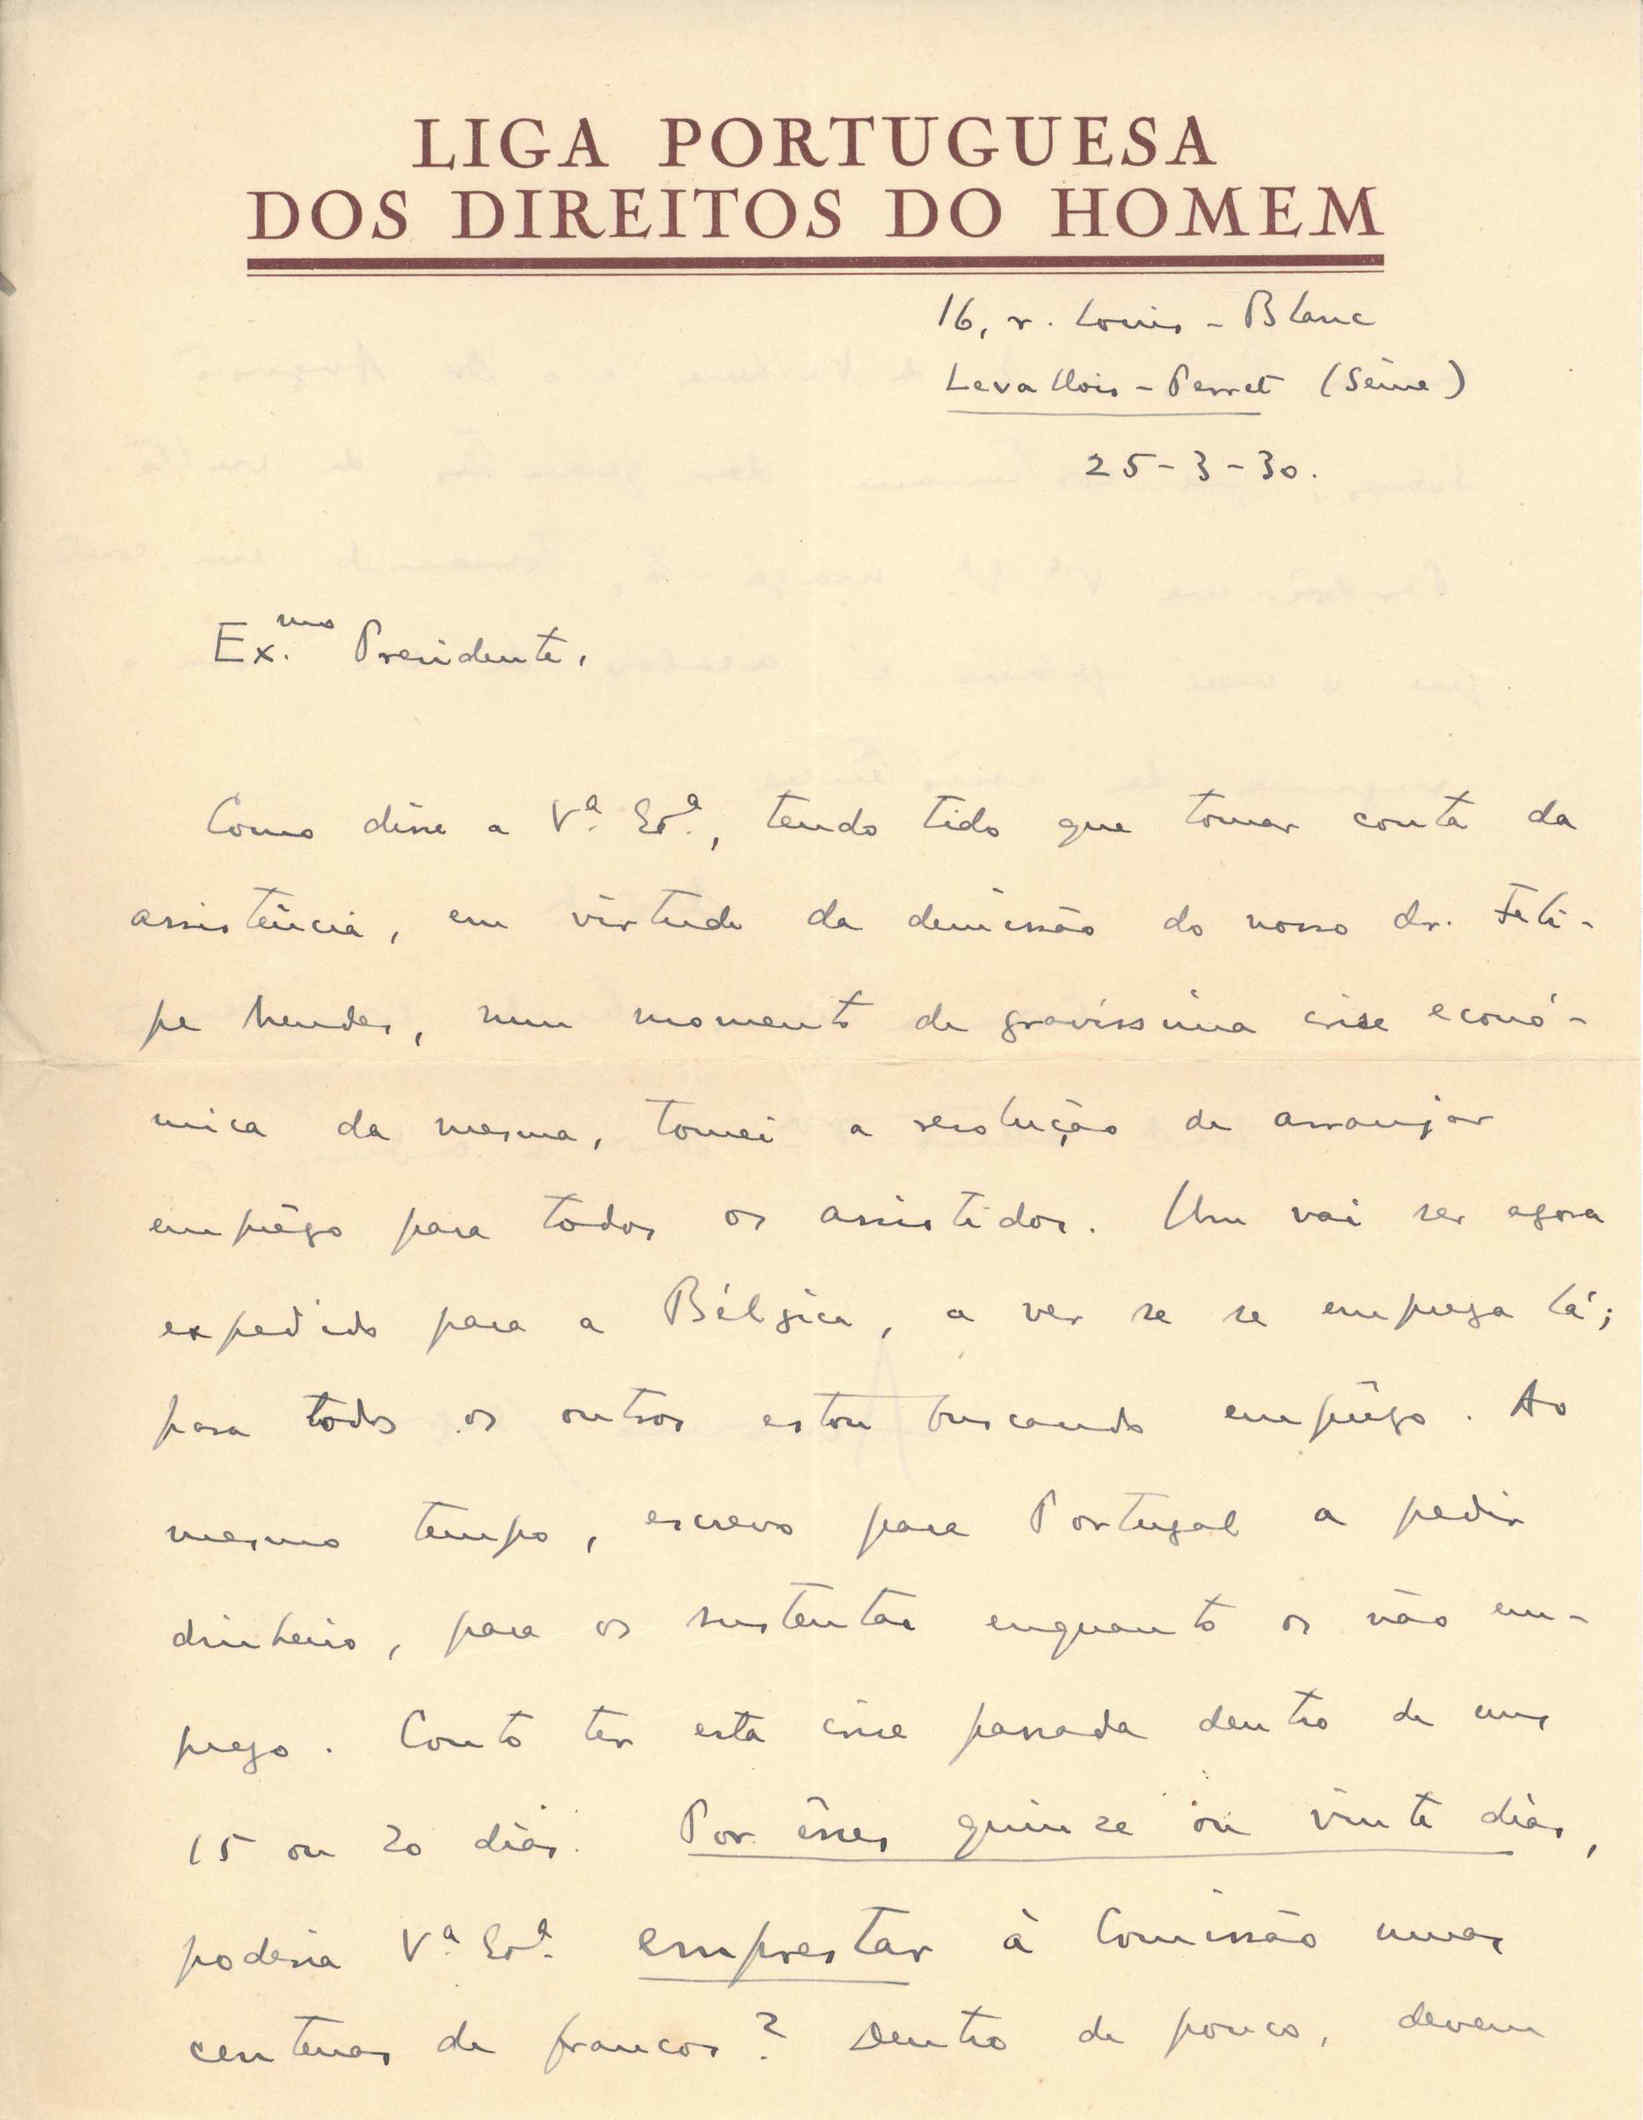 LIGA PORTUGUESA
DOS DIREITOS DO HOMEM
16, r. Louis-Blanc
Levallois-Perret (Seine)
25-3-30.
Ex.mo Presidente,
Como disse a V.ª Ex.ª, tendo tido que tomar conta da
assistência, em virtude da demissão do nosso dr. Feli-
pe Mendes, num momento de gravíssima crise econó-
mica da mesma, tomei a resolução de arranjar
emprêgo para todos os assistidos. Um vai ser agora
expedido para a Bélgica, a ver se se emprega lá;
para todos os outros estou buscando emprêgo. Ao
mesmo tempo, escrevo para Portugal a pedir
dinheiro, para os sustentar enquanto os não em-
prego. Conto ter esta crise passada dentro de uns
15 ou 20 dias. Por êsses quinze ou vinte dias,
poderia V.ª Ex.ª emprestar à Comissão umas
centenas de francos? Dentro de pouco, devem